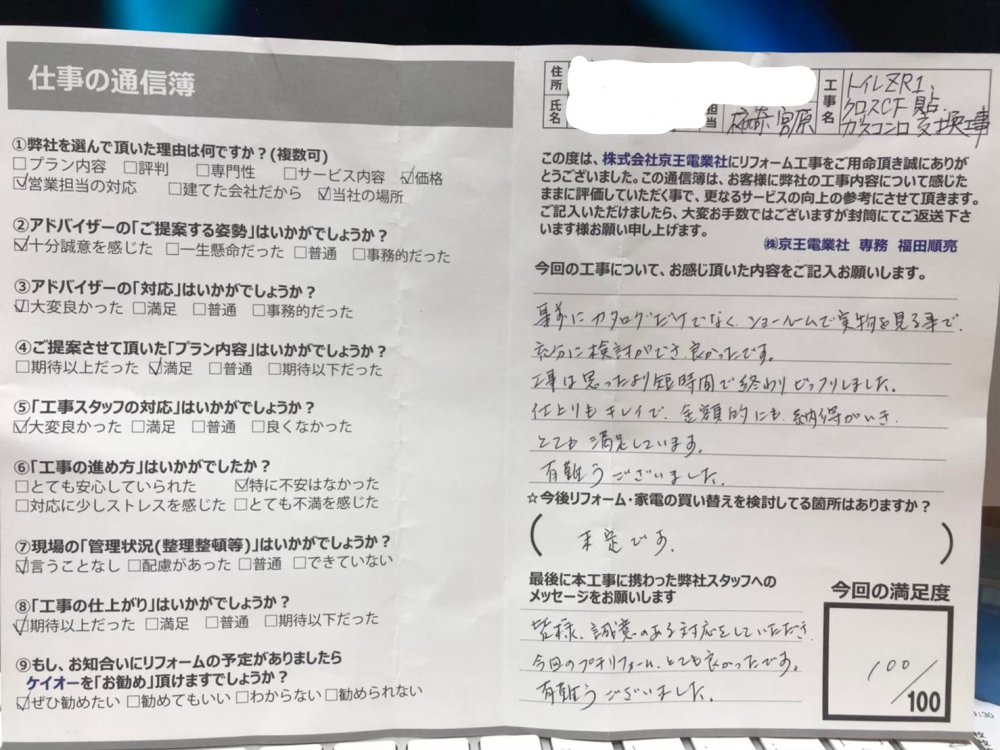 仕事の通信簿
①弊社を選んで頂いた理由は何ですか？(複数可)
□プラン内容 □評判 □専門性 □サービス内容 ☑価格
☑営業担当の対応 □建てた会社だから ☑当社の場所
②アドバイザーの「ご提案する姿勢」はいかがでしょうか？
☑十分誠意を感じた □一生懸命だった □普通 □事務的だった
③アドバイザーの「対応」はいかがでしょうか？
☑大変良かった □満足 □普通 □事務的だった
④ご提案させて頂いた「プラン内容」はいかがでしょうか？
□期待以上だった ☑満足 □普通 □期待以下だった
⑤「工事スタッフの対応」はいかがでしょうか？
☑大変良かった □満足 □普通 □良くなかった
⑥「工事の進め方」はいかがでしたか？
□とても安心していられた ☑特に不安はなかった
□対応に少しストレスを感じた □とても不満を感じた
⑦現場の「管理状況(整理整頓等)」はいかがでしょうか？
☑言うことなし □配慮があった □普通 □できていない
⑧「工事の仕上がり」はいかがでしょうか？
☑期待以上だった □満足 □普通 □期待以下だった
⑨もし、お知合いにリフォームの予定がありましたら
ケイオーを「お勧め」頂けますでしょうか？
☑ぜひ勧めたい □勧めてもいい □わからない □勧められない
住所
氏名
担当
宮原
工事名
トイレZR1、
クロスCF貼、
ガスコンロ交換工事
この度は、株式会社京王電業社にリフォーム工事をご用命頂き誠にありが
とうございました。この通信簿は、お客様に弊社の工事内容について感じた
ままに評価していただく事で、更なるサービスの向上の参考にさせて頂きます。
ご記入いただけましたら、大変お手数ではございますが封筒にてご返送下さ
います様お願い申し上げます。
㈱京王電業社 専務 福田順亮
今回の工事について、お感じ頂いた内容をご記入お願いします。
事前にカタログだけでなく、ショールームで実物を見る事で、
充分に検討ができ良かったです。
工事は思ったより短時間で終わりビックリしました。
仕上りもキレイで、金額的にも納得がいき、
とても満足しています。
有難うございました。
☆今後リフォーム・家電の買い替えを検討してる箇所はありますか？
(未定です。)
最後に本工事に携わった弊社スタッフへの
メッセージをお願いします
皆様、誠意のある対応をしていただき、
今回のプチリフォーム、とても良かったです。
有難うございました。
今回の満足度
100/100